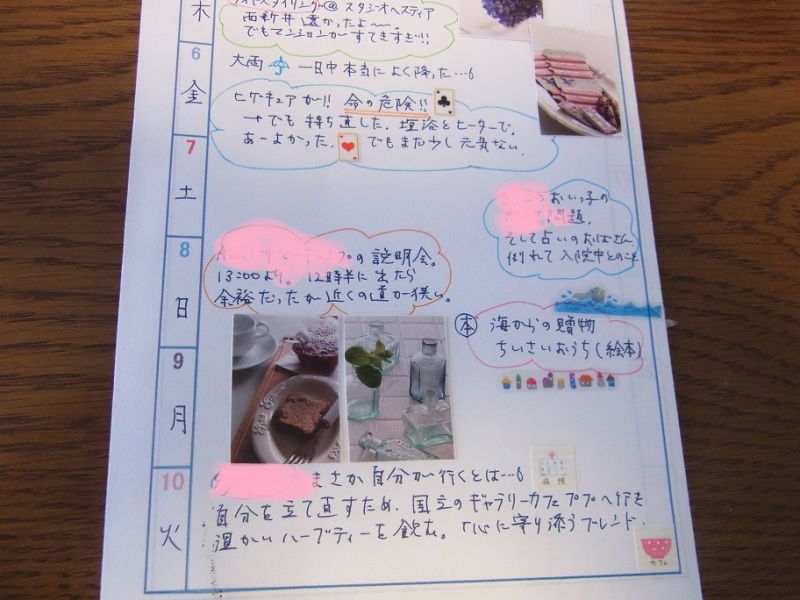 木
スタイリング@スタジオヘスティア
西新井 遠かったよ〜。
でもマンションがすてきすぎ!!
6
金
大雨 一日中本当によく降った…
ヒゲキュアが!! 命の危険!!
→でも持ち直した。塩浴とヒーターで。
あーよかった。でもまだ少し元気ない。
7
土
おいっ子の
問題。
そして占いのおばさん
倒れて入院中とのこと
8
日
の説明会。
13:00より。12時半に出たら
余裕だったが近くの道が狭い。
本 海からの贈物
ちいさいおうち(絵本)
9
月
10
火
まさか自分が行くとは…
病院
自分を立て直すため、国立のギャラリーカフェ ププへ行き
温かいハーブティーを飲む。「心に寄り添うブレンド
カフェ